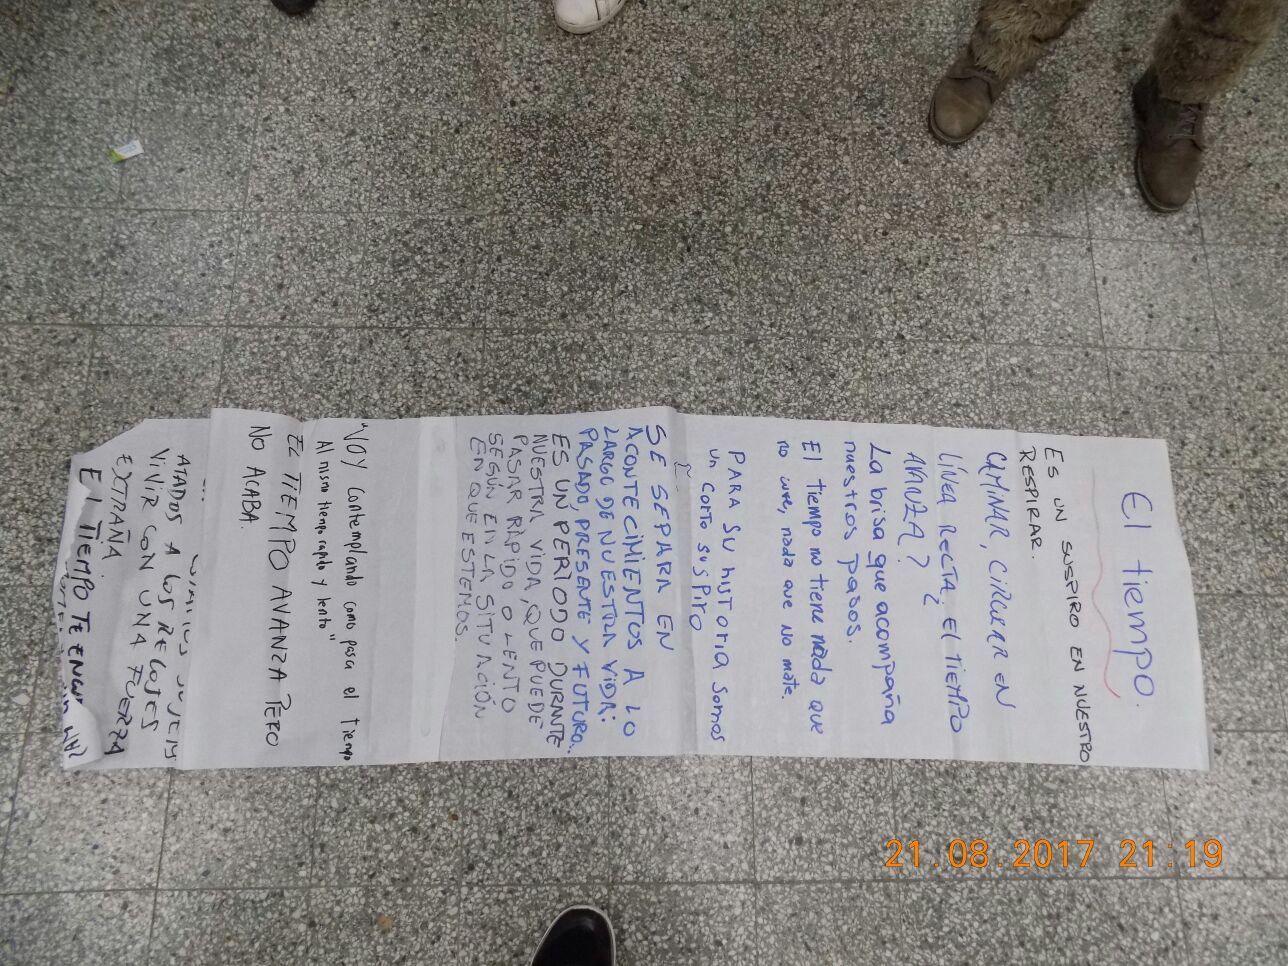 El tiempo.
ES UN SUSPIRO EN NUESTRO
RESPIRAR.
CAMINAR, CIRCULAR EN
LÍNEA RECTA. El TIEMPO
AVANZA?
La brisa que acompaña
nuestros pasos.
El tiempo no tiene nada que
no cure, nada que No mate.
PARA SU HISTORIA SOMOS
un corto suspiro
SE SEPARA EN
ACONTECIMIENTOS A LO
LARGO DE NUESTRA VIDA:
PASADO, PRESENTE Y FUTURO..
ES UN PERÍODO DURANTE
NUESTRA VIDA, QUE PUEDE
PASAR RÁPIDO O LENTO
SEGÚN EN LA SITUACIÓN
EN QUE ESTEMOS.
"VOY Contemplando como pasa el tiempo
Al mismo tiempo rapido y lento"
EL TIEMPO AVANZA PERO
NO ACABA.
ATADOS A LOS RELOJES
VIVIR CON UNA FUERZA
EXTRAÑA
El TIEMPO TE
21.08.2017 21:19